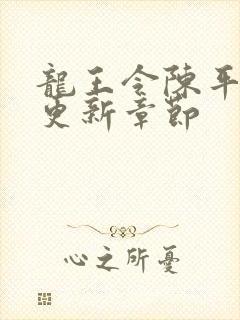 龍王令陳平
更新章節
心之所憂